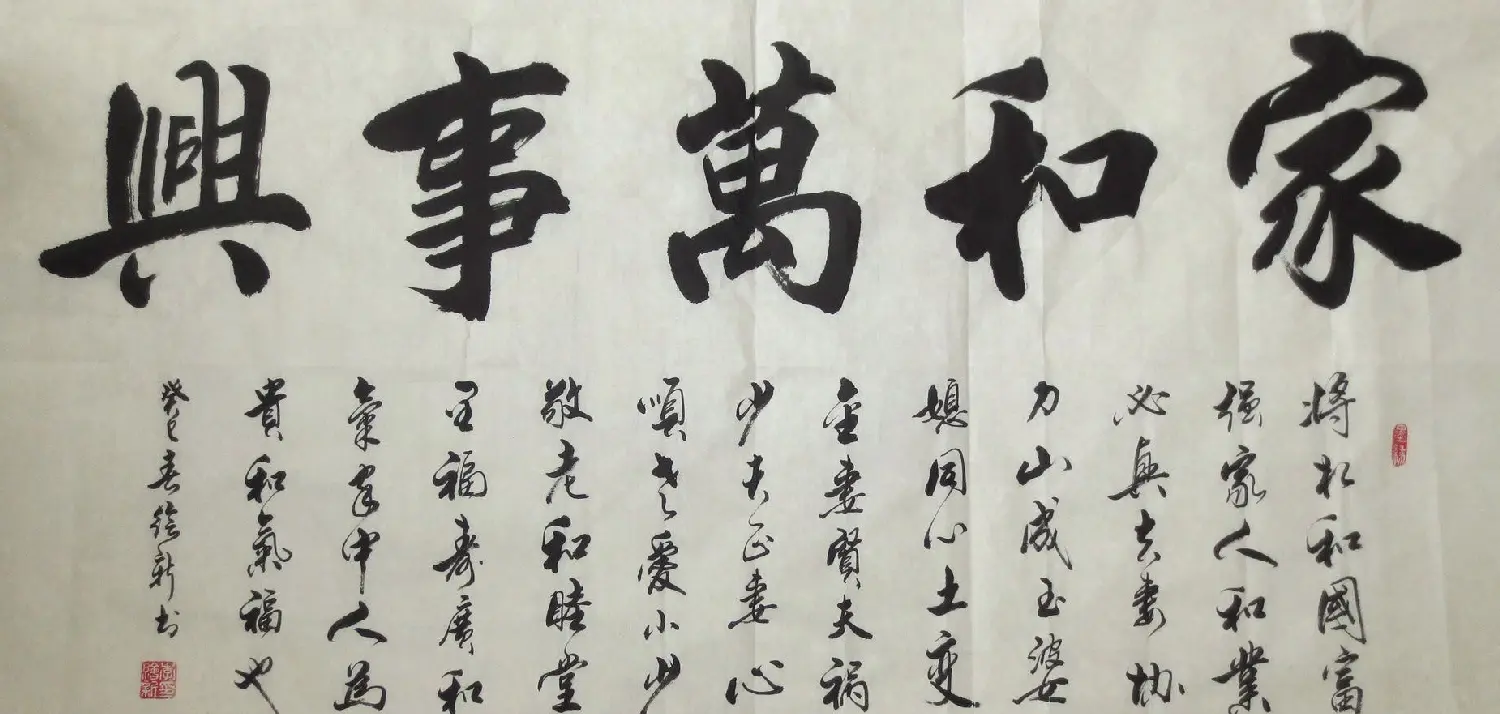 家和萬事興
將相和國富
強家人和業
必興夫妻協
力山成玉婆
媳同心土變
金妻賢夫禍
少夫正妻心
順老愛小少
敬老和睦堂
呈福壽廣和
氣家中人為
貴和氣福也
癸巳春新书